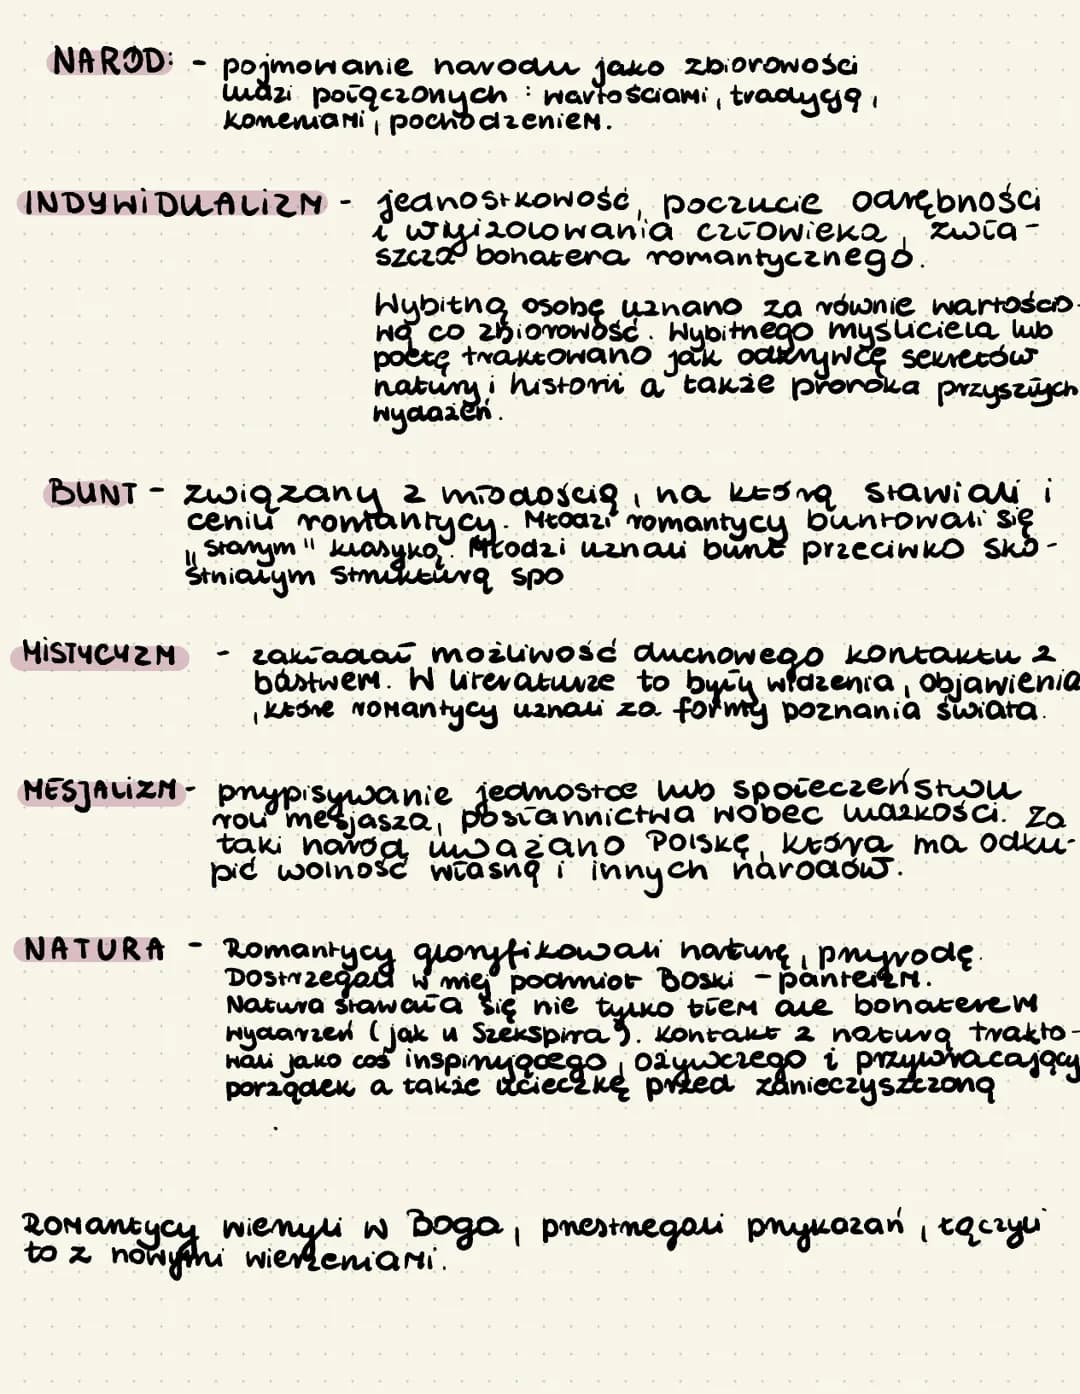 NARÓD: - pojmowanie narodu jako zbiorowości
ludzi połączonych : wartościami, tradycją,
korzeniami, pochodzeniem.
INDYWIDUALIZM - jednostkowość, poczucie odrębności
i wyizolowania człowieka, zwła-
szcza bohatera romantycznego.
Wybitną osobę uznano za równie wartościo-
wą co zbiorowość. Wybitnego myśliciela lub
poetę traktowano jak odkrywcę sekretów
natury i historii a także proroka przyszłych
wydażeń.
BUNT - związany z młodością, na którą stawiali i
cenili romantycy. Młodzi romantycy buntowali się
"starym" klasyką. Młodzi uznali bunt przeciwko sko-
stniałym strukturą spo
MISTYCYZM - zakładał możliwość duchowego kontaktu z
bóstwem. W literaturze to były widzenia, objawienia
, które romantycy uznali za formy poznania świata.
MESJALIZM - przypisywanie jednostce lub społeczeństwu
roli mesjasza, posłannictwa wobec ludzkości. Za
taki naród uważano Polskę, która ma odku-
pić wolność własną i innych narodów.
NATURA - Romantycy gloryfikowali naturę, przyrodę.
Dostrzegali w niej podmiot Boski - panteizm.
Natura stawała się nie tylko tłem ale bohaterem
wydarzeń (jak u Szekspira). Kontakt z naturą trakto-
wali jako coś inspirującego, ożywczego i przywracający
porządek a także ucieczkę przed zanieczyszczoną
Romantycy wierzyli w Boga, przestrzegali przykazań, łączyli
to z nowymi wierzeniami.